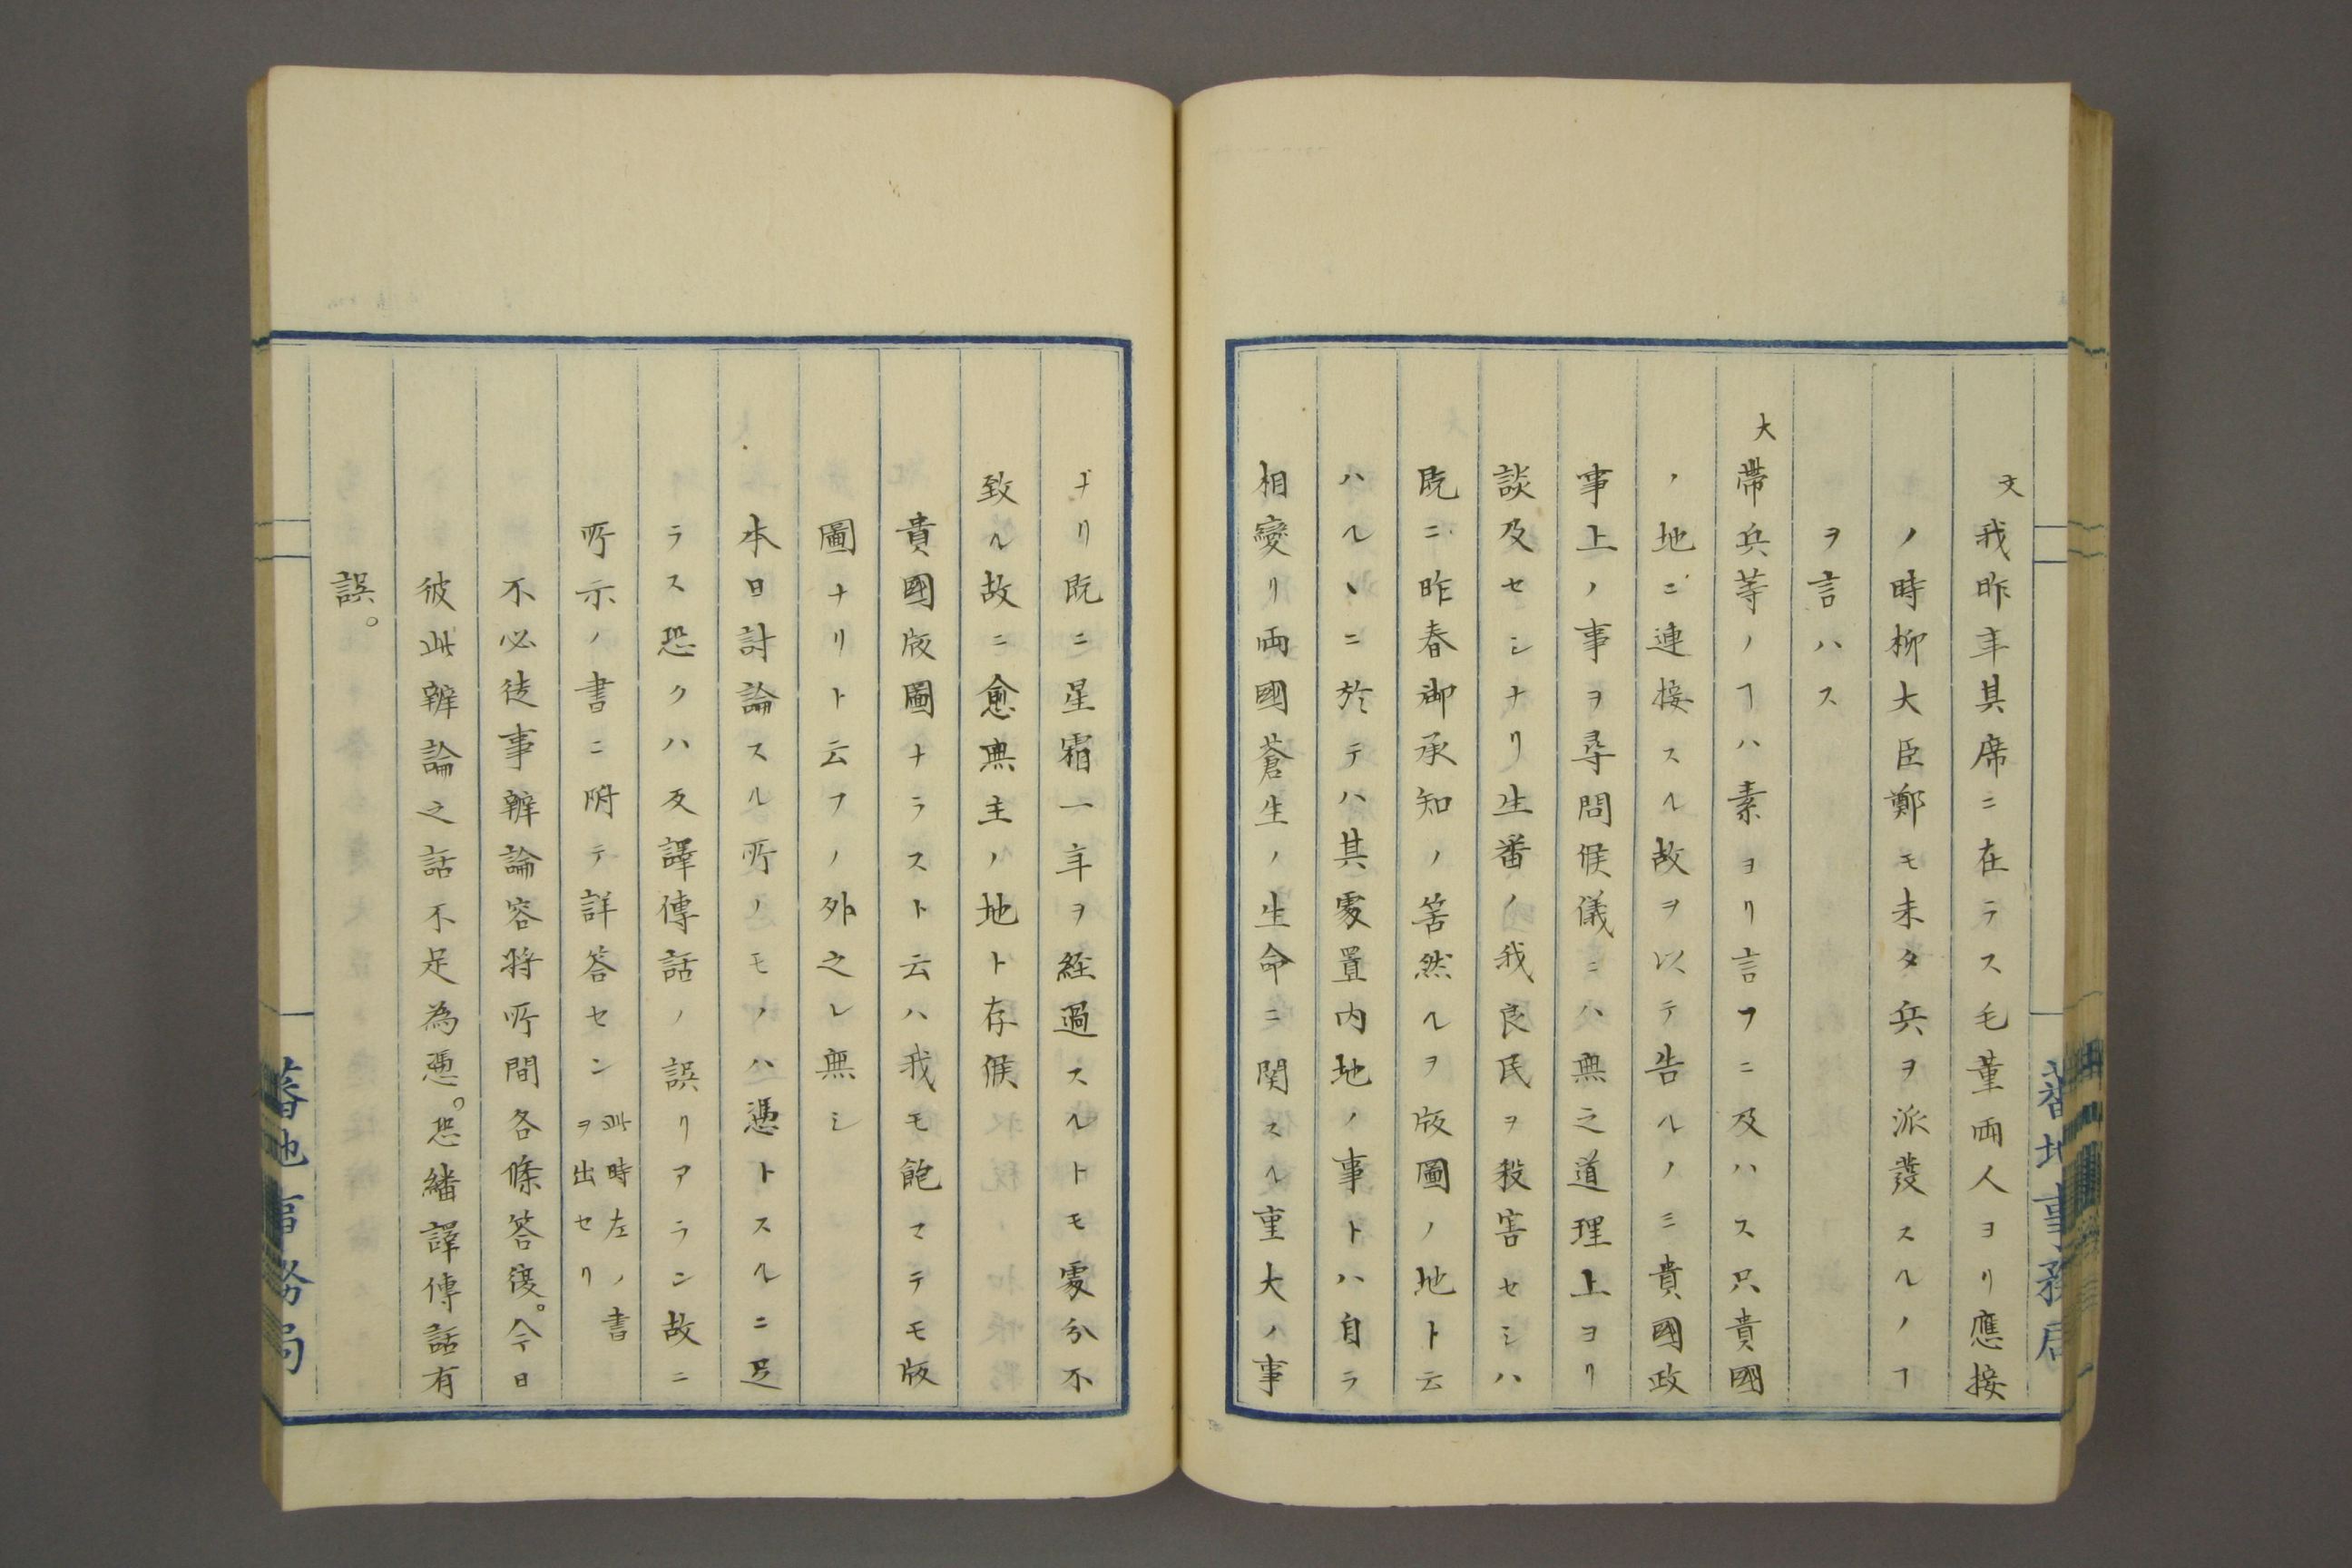 文我昨年其席ニ在ラス毛董両人ヨリ應接
ノ時柳大臣鄭モ未タ兵ヲ派發スルノヿ
ヲ言ハス
大帶兵等ノヿハ素ヨリ言フニ及ハス只貴國
ノ地ニ連接スル故ヲ以テ告ルノミ貴國政
事上ノ事ヲ尋問候儀ニハ無之道理上ヨリ
談及セシナリ生番ノ我良民ヲ殺害セシハ
既ニ昨春御承知ノ筈然ルヲ版圖ノ地ト云
ハルヽニ於テハ其處置内地ノ事トハ自ラ
相變リ両國蒼生ノ生命ニ関スル重大ノ事
ナリ既ニ星霜一年ヲ経過スルトモ處分不
致ル故ニ愈無主ノ地ト存候
貴國版圖ナラスト云ハ我モ飽マテモ版
圖ナリト云フノ外之レ無シ
本日討論スル所ノモノハ憑トスルニ足
ラス恐クハ反譯傳話ノ誤リアラン故ニ
所示ノ書ニ附テ詳答セン此時左ノ書
ヲ出セリ
不必徒事辨論容将所間各條答復。今日
彼此辨論之話不足為憑。恐繙譯傳話有
誤。
蕃地事務局
蕃地事務局